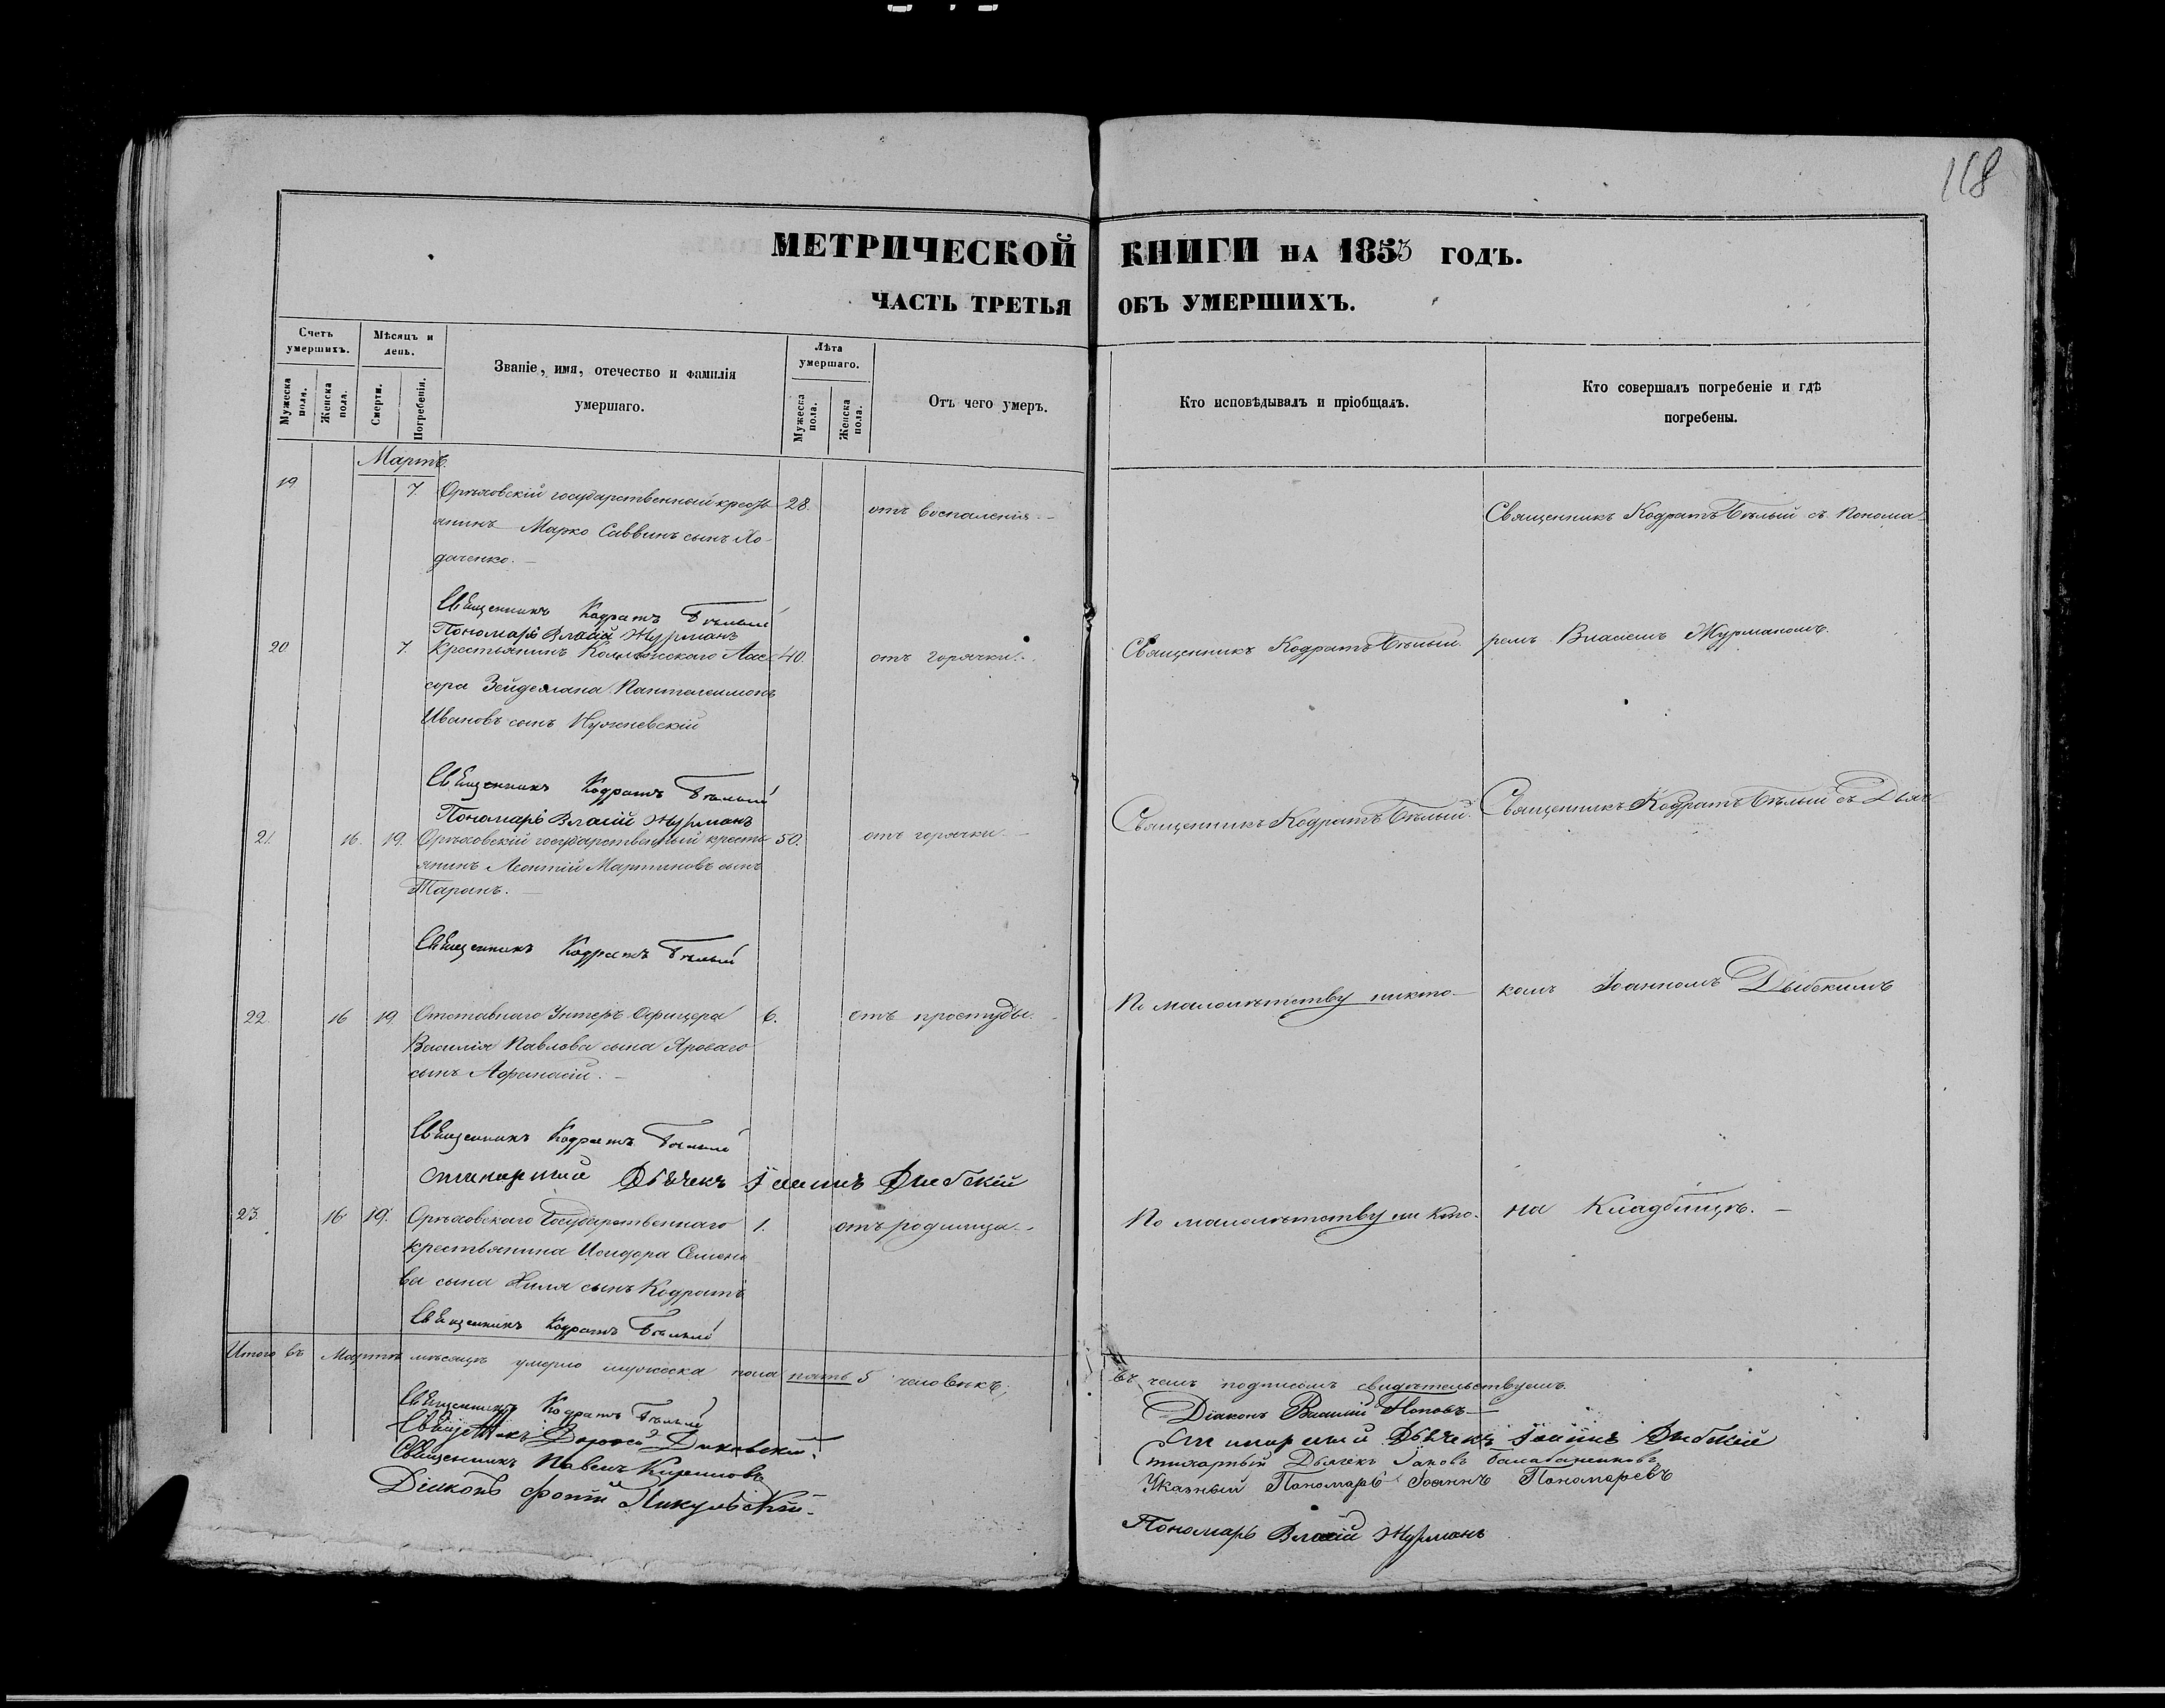 118
МЕТРИЧЕСКОЙ КНИГИ НА 1853 ГОДЪ.
ЧАСТЬ ТРЕТЬЯ ОБЪ УМЕРШИХЪ.
Счетъ умершихъ.
Мужеска пола.
Женска пола.
Мѣсяцъ и день.
Смерти.
Погребенія.
Званіе, имя, отечество и фамилія
умершаго.
Лѣта умершаго.
Мужеска пола.
Женска пола.
Отъ чего умеръ.
Кто исповѣдывалъ и пріобщалъ.
Кто совершалъ погребеніе и гдѣ
погребены.
Мартъ.
19 7. Орѣховскій государственный кресть 28. отъ воспаленія Священникъ Кодратъ Бѣлый съ Понома-
янинъ Марко Саввинъ сынъ Хо-
даченко.
Священникъ Кодратъ Бѣлый
Пономарь Власій Журманъ
20 7. Крестьянинъ Коллежскаго Ас- 40. отъ горячки. Священникъ Кодратъ Бѣлый. ремъ Власіемъ Журманомъ.
сора Пантелеимонъ
Ивановъ сынъ
Священникъ Кодратъ Бѣлый
Пономарь Власій Журманъ
21. 16. 19. Орѣховскій государственный кресть- 50. отъ горячки Священникъ Кодратъ Бѣлый. Священникъ Кодратъ Бѣлый съ Дьяч-
янинъ Леонтій Мартиновъ сынъ
Таранъ.
Священникъ Кодратъ Бѣлый
22. 16 19. Отставнаго Унтеръ-Офицера 6. отъ простуды. По малолѣтству никто- комъ Іоанномъ Дыбскимъ
Василія Павлова сына Яроваго
сынъ Афанасій.
Священникъ Кодратъ Бѣлый
стихарный Дьячекъ Іоаннъ Дибскій
23. 16 19. Орѣховскаго Государственнаго 1. отъ родимца. По малолѣтству ни кто. на Кладбищѣ.
крестьянина Исидора Семено
ва сына Хиля сынъ Кодратъ
Священникъ Кодратъ Бѣлый
Итого въ Мартѣ мѣсяцѣ умерло мужеска пола пять 5 человѣкъ; въ чемъ подписомъ свидѣтельствуемъ.
Священникъ Кодратъ Бѣлый
Священникъ Дорофей
Священникъ Павелъ Кириловъ
Діаконъ Фотій Никульскій.
Діаконъ Василій Поповъ
Стихарный Дьячекъ Іоаннъ Дибскій
Стихарный Дьячекъ Іаковъ
Указный Пономарь Іоаннъ Пономаревъ
Пономарь Власій Журманъ